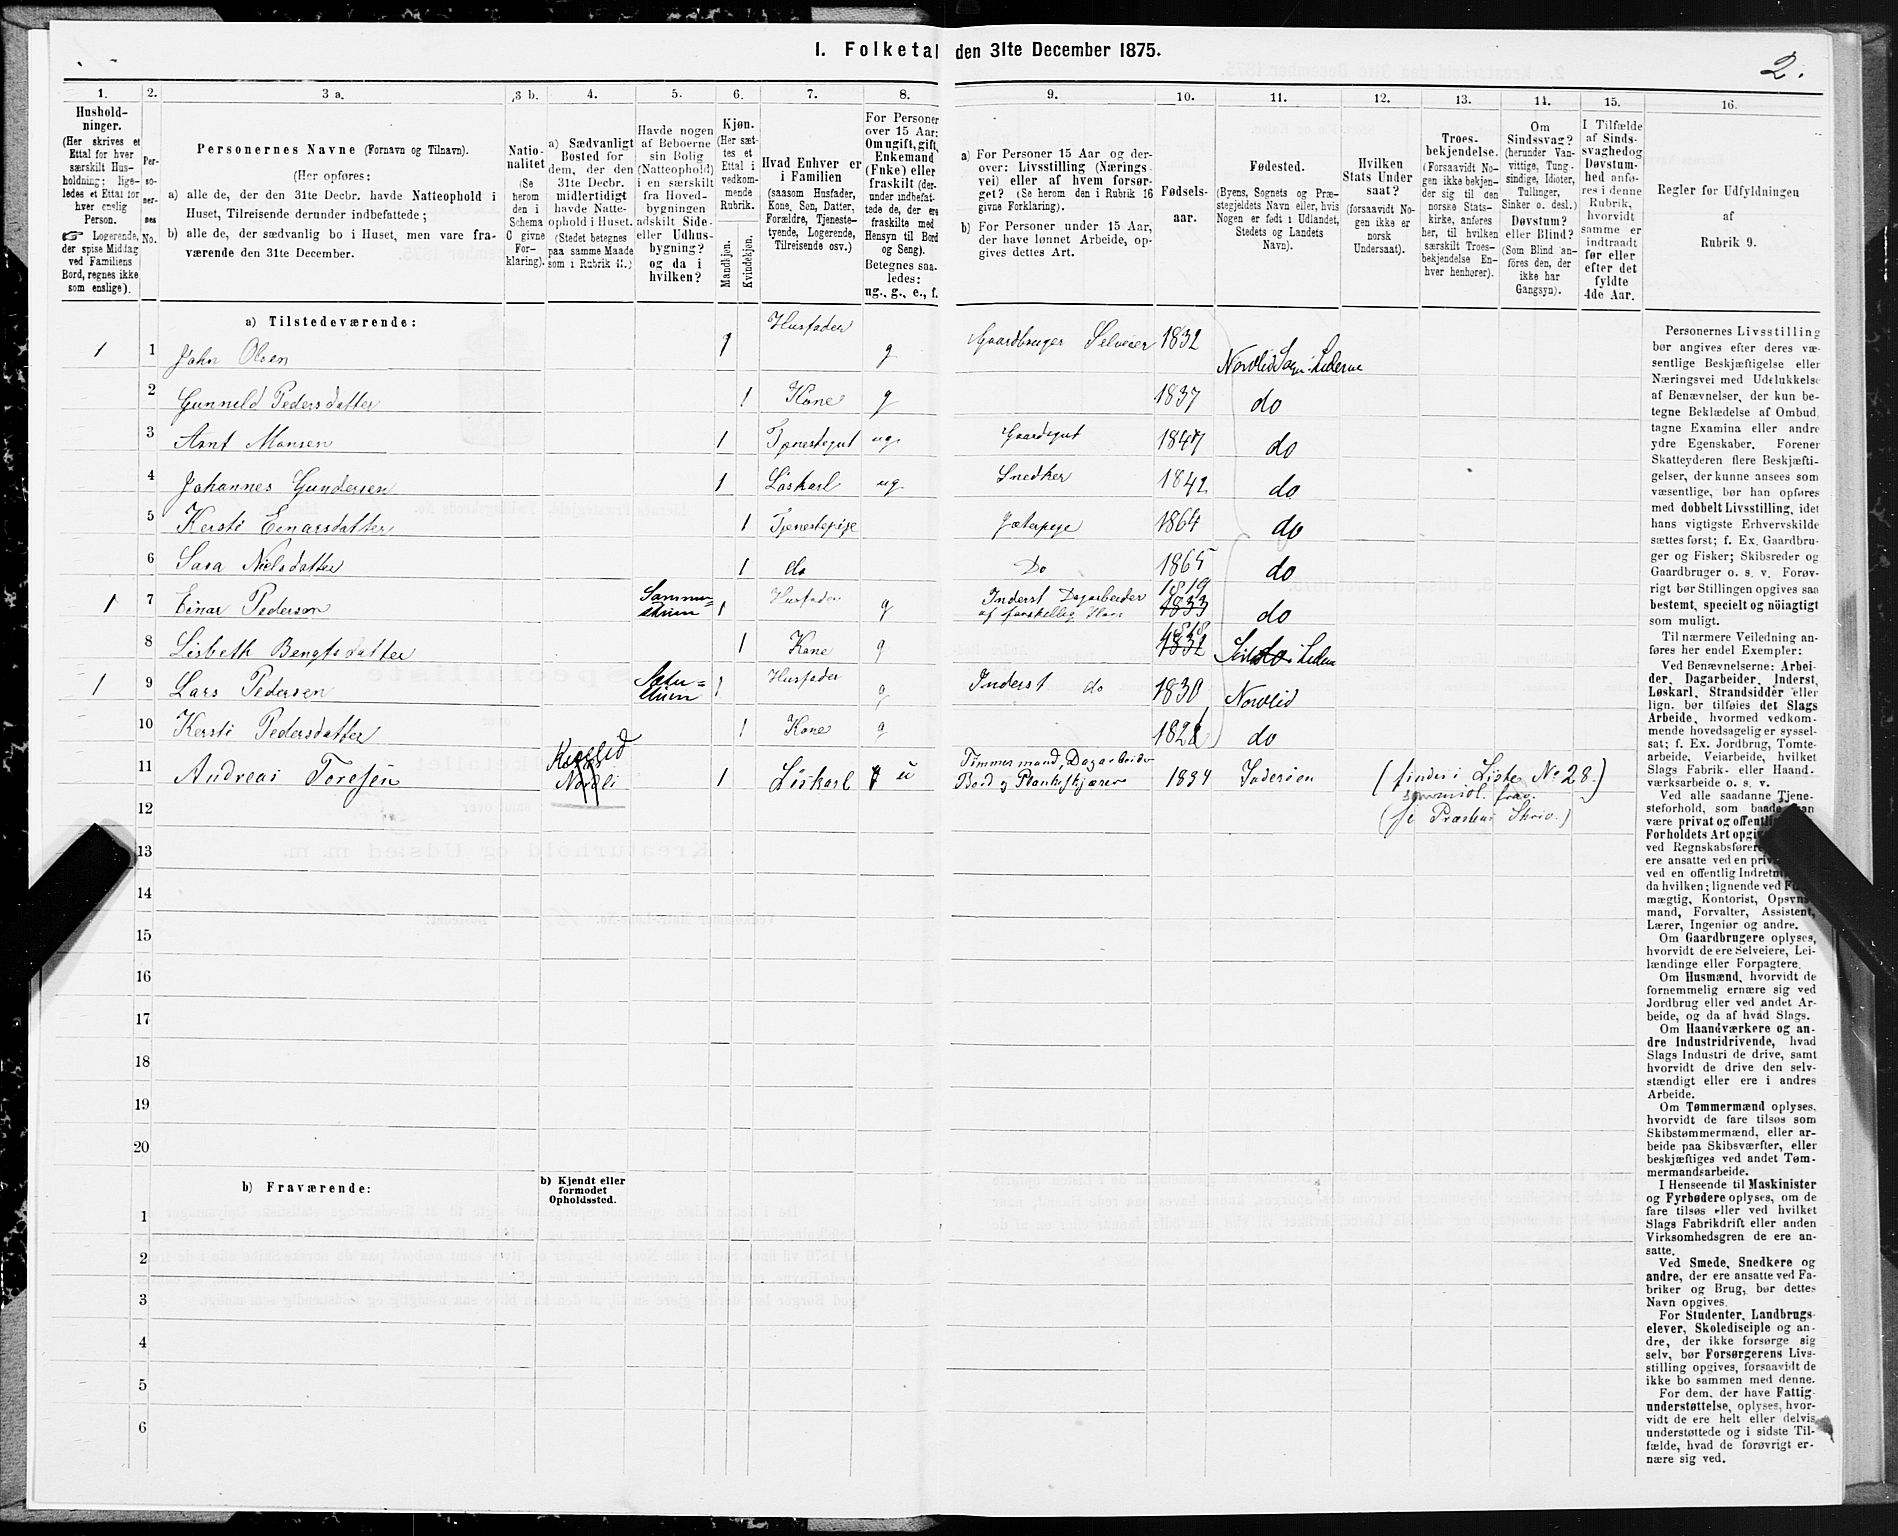 I. Folketal den 31te December 1875.
2.
1. 2. 3 a. 3 b. 4. 5. 6. 7. 8. 9. 10. 11. 12. 13. 14. 15. 16.
Hushold-
ninger.
(Her skrives et
Ettal for hver
særskilt Hus-
holdning; lige-
ledes et Ettal for
hver enslig
Person.
Logerende,
der spise Middag
ved Familiens
Bord, regnes ikke
som enslige).
Per-
so-
ner-
nes
No.
Personernes Navne (Fornavn og Tilnavn).
(Her opføres:
a) alle de, der den 31te Decbr. havde Natteophold i
Huset, Tilreisende derunder indbefattede;
b) alle de, der sædvanlig bo i Huset, men vare fra-
værende den 31te December.
Natio-
nalitet
(Se
herom
den i
Schema
C givne
For-
klaring).
a) Sædvanligt
Bosted for
dem, der den
31te Decbr.
midlertidigt
havde Natte-
ophold i Huset.
(Stedet betegnes
paa samme Maade
som i Rubrik 11.)
Havde nogen
af Beboerne
sin Bolig
(Natteophold)
i en særskilt
fra Hoved-
bygningen
adskilt Side-
eller Udhus-
bygning?
og da i
hvilken?
Kjøn.
(Her sæt-
tes et
Ettal i
vedkom-
mende
Rubrik.
Mandkjøn.
Kvindekjøn.
Hvad Enhver er
i Familien
(saasom Husfader,
Kone, Søn, Datter,
Forældre, Tjeneste-
tyende, Logerende,
Tilreisende osv.)
For Personer
over 15 Aar:
Om ugift, gift,
Enkemand
(Enke) eller
fraskilt (der-
under indbefat-
tede de, der ere
fraskilte med
Hensyn til Bord
og Seng).
Betegnes saa-
ledes:
ug., g., e., f.
a) For Personer 15 Aar og der-
over: Livsstilling (Nærings-
vei) eller af hvem forsør-
get? (Se herom den i Rubrik 16
givne Forklaring).
b) For Personer under 15 Aar,
der have lønnet Arbeide, op-
gives dettes Art.
Fødsels-
aar.
Fødested.
(Byens, Sognets og Præ-
stegjeldets Navn eller, hvis
Nogen er født i Udlandet,
Stedets og Landets
Navn).
Hvilken
Stats Under
saat?
(forsaavidt No-
gen ikke er
norsk
Undersaat).
Troes-
bekjendelse.
(Forsaavidt No-
gen ikke bekjen-
der sig til den
norske Stats-
kirke, anføres
her, til hvilken
særskilt Troes-
bekjendelse En-
hver henhører).
Om
Sindssvag?
(herunder Van-
vittige, Tung-
sindige, Idioter,
Tullinger,
Sinker o. desl.)
Døvstum?
eller Blind?
(Som Blind an-
føres den, der
ikke har
Gangsyn).
I Tilfælde
af Sinds-
svaghed og
Døvstum-
hed anfø-
res i denne
Rubrik,
hvorvidt
samme er
indtraadt
før eller
efter det
fyldte
4de Aar.
Regler for Udfyldningen
af
Rubrik 9.
a) Tilstedeværende:
1 1 John Olsen 1 Husfader g Gaardbruger Selveier 1832
2 Gunnild Pedersdatter 1 Kone g 1837 do
3 Arnt Monsen 1 Tjenestegut ug. Gaardsgut 1847 do
4 Johannes Gundersen 1 Løskarl ug. Snedker 1842 do
5 Kersti Einarsdatter 1 Tjenestepige Jæterpige 1864 do
6 Sara Nielsdatter 1 do Do 1865 do
1819
1 7 Einar Pedersen 1 Husfader g Inderst Dagarbeider 1833 do
8 Lisbeth Bengtsdatter 1 Kone g 1832
1 9 Lars Pedersen 1 Husfader g Inderst do 1830 Nordlid
10 Kersti Pedersdatter 1 Kone g do
11 Andreas Toresen Nordli 1 Løskarl u Tømmermand, Dagarbeider
Bord og Plankeskjærer 1834 Inderøen (findes i Liste No 28.)
12
13
14
15
16
17
18
19
20
b) Fraværende:
b) Kjendt eller
formodet
Opholdssted.
1
2
3
4
5
6
Personernes Livsstilling
bør angives efter deres væ-
sentlige Beskjæftigelse eller
Næringsvei med Udelukkelse
af Benævnelser, der kun be-
tegne Beklædelse af Ombud,
tagne Examina eller andre
ydre Egenskaber. Forener
Skatteyderen flere Beskjæfti-
gelser, der kunne ansees som
væsentlige, bør han opføres
med dobbelt Livsstilling, idet
hans vigtigste Erhvervskilde
sættes først; f. Ex. Gaardbru-
ger og Fisker; Skibsreder og
Gaardbruger o. s. v. Forøv-
rigt bør Stillingen opgives saa
bestemt, specielt og nöiagtigt
som muligt.
Til nærmere Veiledning an-
føres her endel Exempler:
Ved Benævnelserne: Arbei-
der, Dagarbeider, Inderst,
Løskarl, Strandsidder eller
lign. bør tilføies det Slags
Arbeide, hvormed vedkom-
mende hovedsagelig er syssel-
sat; f. Ex. Jordbrug, Tomte-
arbeide, Veiarbeide, hvilket
Slags Fabrik- eller Haand-
værksarbeide o. s. v.
Ved alle saadanne Tjene-
steforhold, som baade kan
være privat og offentlig
Forholdets Art opgives
ved Regnskabsførere,
ere ansatte ved en
ved en offentlig
da hvilken; lignende ved
mægtig, Kontorist, Opsyns-
mand, Forvalter, Assistent,
Lærer, Ingeniør og andre.
Om Gaardbrugere oplyses,
hvorvidt de ere Selveiere, Lei-
lændinge eller Forpagtere.
Om Husmænd, hvorvidt de
fornemmelig ernære sig ved
Jordbrug eller ved andet Ar-
beide, og da af hvad Slags.
Om Haandværkere og an-
dre Industridrivende, hvad
Slags Industri de drive, samt
hvorvidt de drive den selv-
stændigt eller ere i andres
Arbeide.
Om Tømmermænd oplyses,
hvorvidt de fare tilsøs som
Skibstømmermænd, eller ar-
beide paa Skibsværfter, eller
beskjæftiges ved andet Tøm-
mermandsarbeide.
I Henseende til Maskinister
og Fyrbødere oplyses, om de
fare tilsøs eller ved hvilket
Slags Fabrikdrift eller anden
Virksomhedsgren de ere an-
satte.
Ved Smede, Snedkere og
andre, der ere ansatte ved Fa-
briker og Brug, bør dettes
Navn opgives.
For Studenter, Landbrugs-
elever, Skoledisciple og an-
dre, der ikke forsørge sig
selv, bør Forsørgerens Livs-
stilling opgives, forsaavidt de
ikke bo sammen med denne.
For dem, der have Fattig-
understøttelse, oplyses, hvor-
vidt de ere helt eller delvis
understøttede og i sidste Til-
fælde, hvad de forøvrigt er-
nære sig ved.